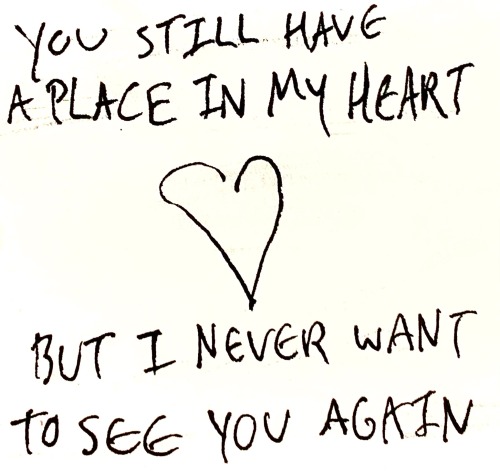 YOU STILL HAVE
A PLACE IN MY HEART
BUT I NEVER WANT
TO SEE YOU AGAIN